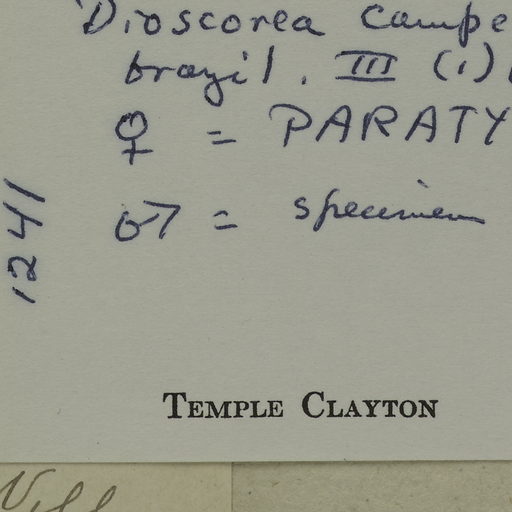 Dioscorea campe
brazil. III (1)
♀ = PARATY
♂ = specimen
1241
TEMPLE CLAYTON